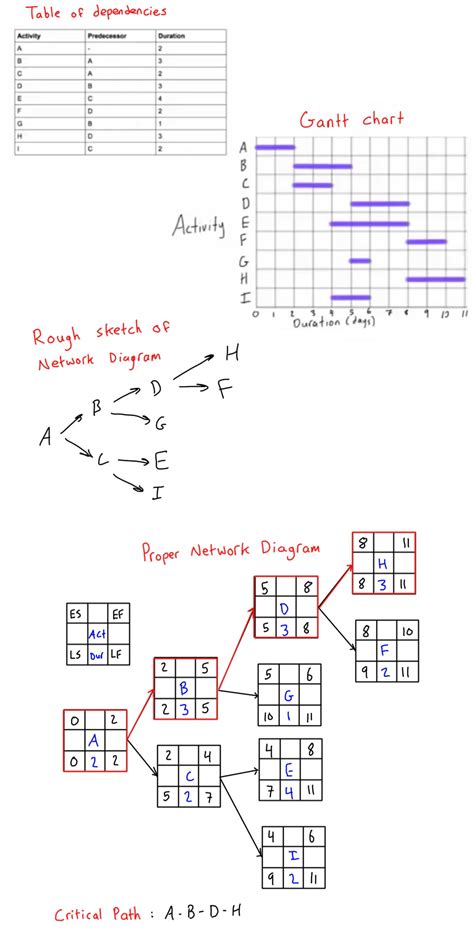 Table of dependencies
Activity Predecessor Duration
A - 2
B A 3
C A 2
D B 3
E C 4
F D 2
G B 1
H D 3
I C 2
Gantt chart
A
B
C
D
Activity E
F
G
H
I
0 1 2 3 4 5 6 7 8 9 10 11
Duration (days)
Rough sketch of
Network Diagram
H
D F
B
G
A
C E
I
Proper Network Diagram
8 11
H
8 3 11
5 8
D
5 3 8
ES EF
Act
LS Dur LF
8 10
F
9 2 11
2 5
B
2 3 5
5 6
G
10 1 11
0 2
A
0 2 2
2 4
C
5 2 7
4 8
E
7 4 11
4 6
I
9 2 11
Critical Path : A-B-D-H